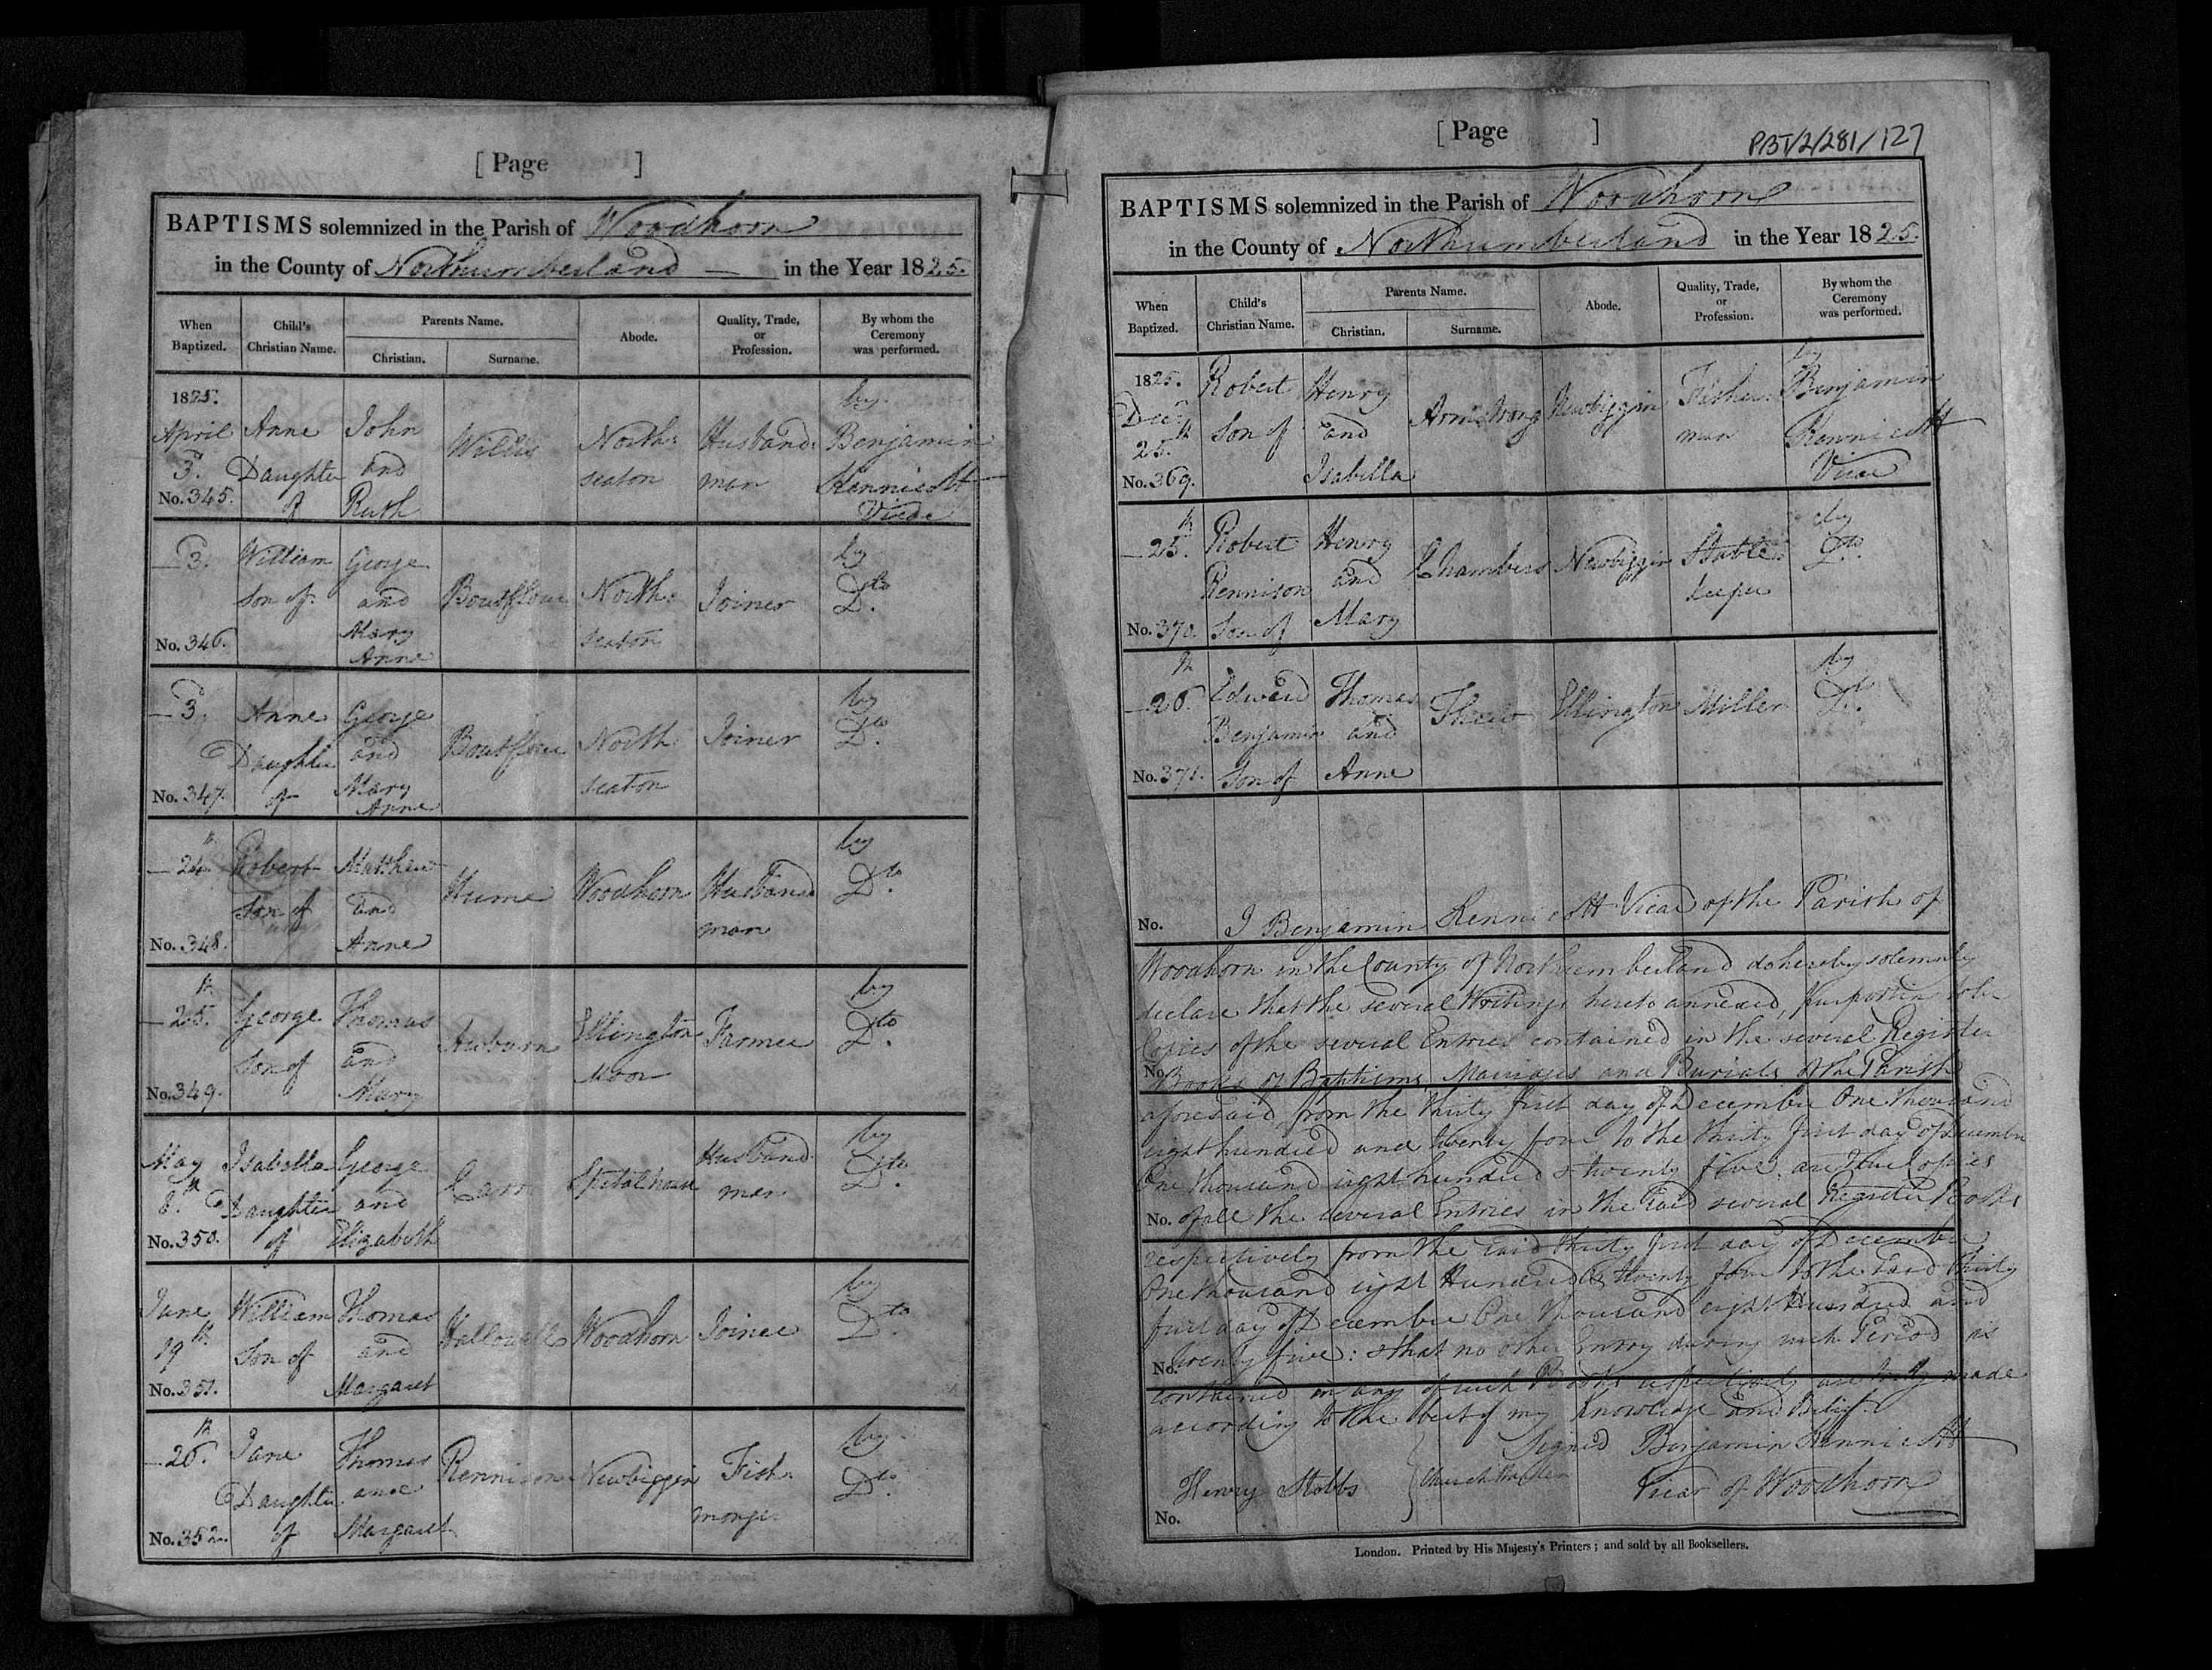 [ Page ]
BAPTISMS solemnized in the Parish of Woodhorn
in the County of Northumberland — in the Year 1825.
When Baptized. Child's Christian Name. Parents Name. Christian. Surname. Abode. Quality, Trade, or Profession. By whom the Ceremony was performed.
1825. April 3. No. 345. Anne Daughter of John and Ruth Willis North seaton Husband man by Benjamin Kennicott Vicar
— 3. No. 346. William Son of George and Mary Anne Boutflour North seaton Joiner by Dto
— 3. No. 347. Anne Daughter of George and Mary Anne Boutflour North seaton Joiner by Dto
— 24th No. 348. Robert Son of Matthew and Anne Hume Woodhorn Husband man by Dto
— 25th No. 349. George Son of Thomas and Mary Auburn Ellington Moor Farmer by Dto
May 8th No. 350. Isabella Daughter of George and Elizabeth Carr Spital house Husband man by Dto
June 19th No. 351. William Son of Thomas and Margaret Hallowell Woodhorn Joiner by Dto
— 26th No. 352. Jane Daughter of Thomas and Margaret Rennison Newbiggin Fish monger by Dto
[ Page ]
PBT/2/281/127
BAPTISMS solemnized in the Parish of Woodhorn
in the County of Northumberland in the Year 1825.
When Baptized. Child's Christian Name. Parents Name. Christian. Surname. Abode. Quality, Trade, or Profession. By whom the Ceremony was performed.
1825. Decr 25th No. 369. Robert Son of Henry and Isabella Armstrong Newbiggin Fisher man by Benjamin Kennicott Vicar
— 25th No. 370. Robert Rennison Son of Henry and Mary Chambers Newbiggin Stable keeper by Dto
— 26th No. 371. Edward Benjamin Son of Thomas and Anne Ellington Miller by Dto
No. I Benjamin Kennicott Vicar of the Parish of
Woodhorn in the County of Northumberland do hereby solemnly
declare that the several Writings hereto annexed, purporting to be
Copies of the several Entries contained in the several Register
No. Books of Baptisms, Marriages and Burials of the Parish
aforesaid from the thirty first day of December One thousand
eight hundred and twenty four to the thirty first day of December
One thousand eight hundred & twenty five, are true Copies
No. of all the several Entries in the said several Register Books
respectively from the said thirty first day of December
One thousand eight Hundred & twenty four to the said thirty
first day of December One thousand eight Hundred and
No. twenty five: & that no other Entry during such Period is
contained in any of such Books respectively are truly made
according to the best of my knowledge and Belief.
Signed Benjamin Kennicott
Henry Stobbs } Church Warden Vicar of Woodhorn
No.
London. Printed by His Majesty's Printers; and sold by all Booksellers.